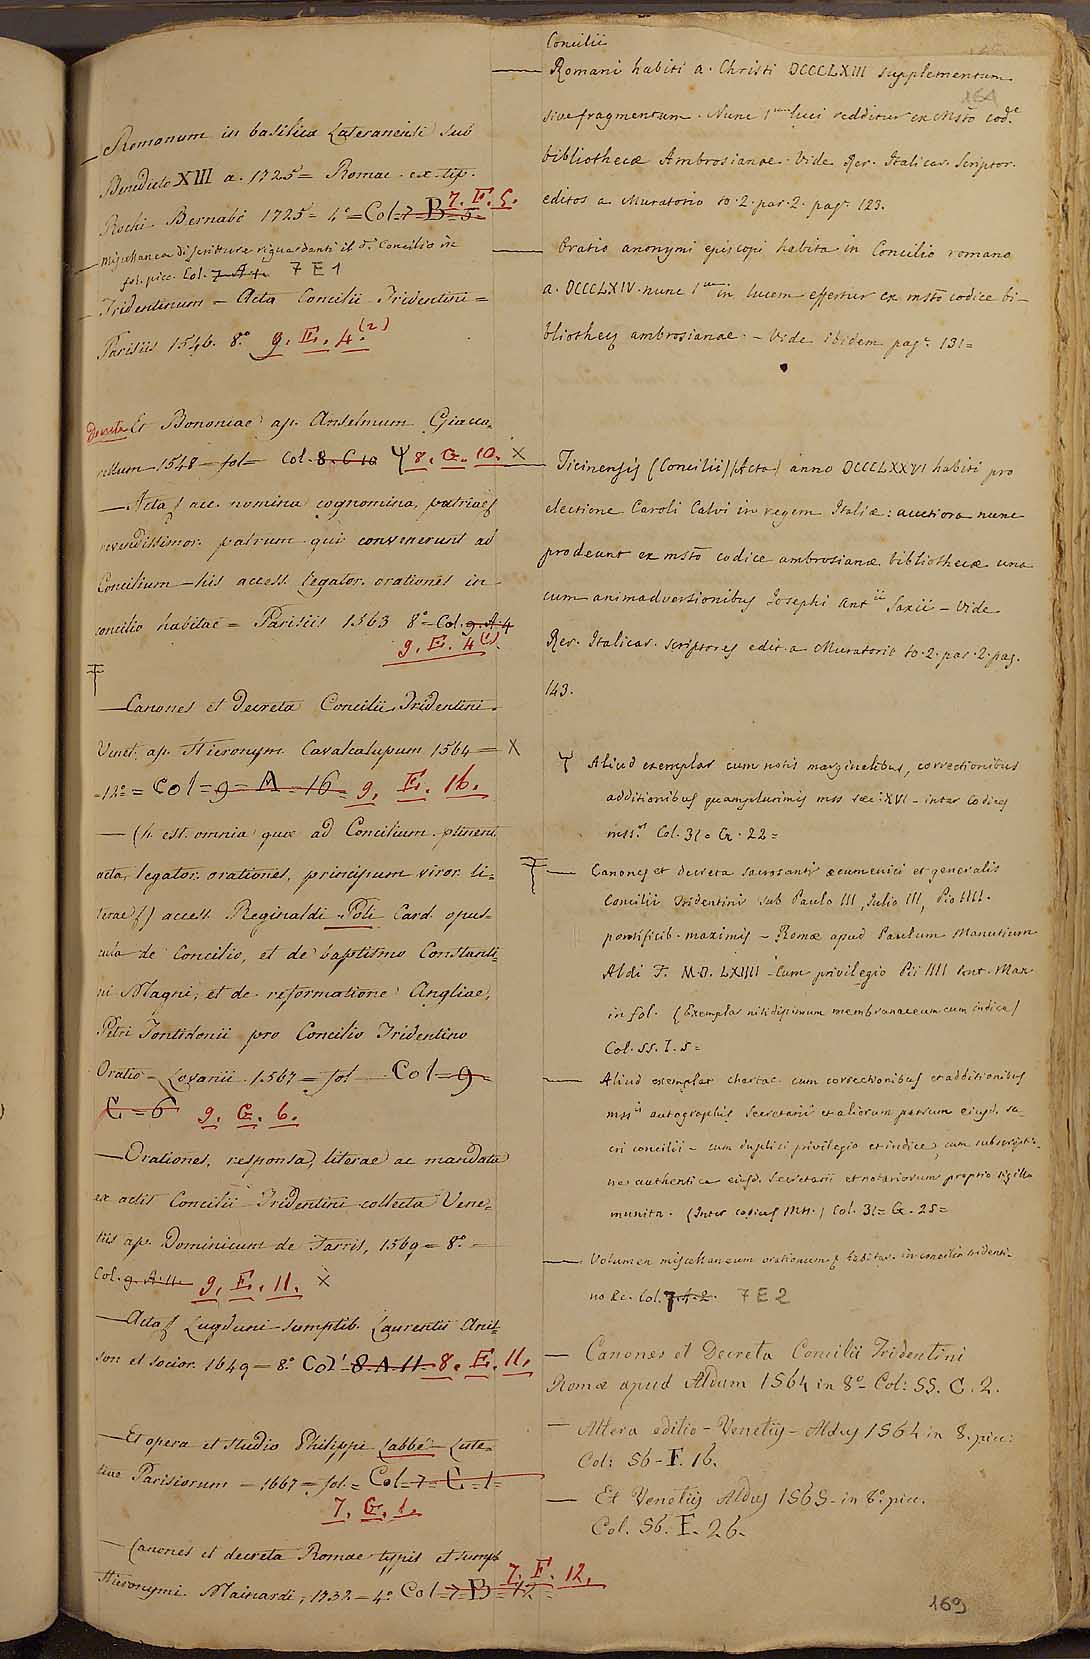 Romanum in basilica Lateranensi sub
Benedicto XIII a. 1725 = Romae ex typ.
Rochi Bernabò 1725 = 4º = Col = 7 = B = 5 = 7. E. 5.
Miscellanea di scritture riguardanti il dº Concilio in
fol. picc. Col. 7. A. 4. 7 E 1
Tridentinum = Acta Concilii Tridentini =
Parisiis 1546. 8º 9. E. 4.(2)
Decreta Et Bononiae ap. Anselmum Giacca-
rellum 1548 = fol = Col. 8. C 10 Ψ 8. G. 10. X
— Acta acc. nomina cognomina, patriae
revendissimor. patrum qui convenerunt ad
Concilium — his access. legator. orationes in
concilio habitae = Parisiis 1563 8º = Col. 9. A. 4
9. E. 4(1).
— Canones et decreta Concilii Tridentini.
Venet. ap. Hieronym. Cavalcalupum 1564 = X
= 12º = Col = 9 = A = 16 = 9. E. 16.
— (h. est. omnia quae ad Concilium ptinent
acta, legator. orationes, principum viror. li-
terae) access. Reginaldi Poli Card. opus-
cula de Concilio, et de baptismo Constanti-
ni Magni, et de reformatione Angliae,
Petri Fontidonii pro Concilio Tridentino
Oratio — Lovanii 1567 = fol — Col = 9 =
C = 6 9. G. 6.
— Orationes, responsa, literae ac mandata
ex actis Concilii Tridentini collecta Vene-
tiis ap. Dominicum de Farris, 1569 = 8º =
Col. 9. A. 11. 9. E. 11. X
— Acta Lugduni sumptib. Laurentii Anis-
son et socior. 1649 = 8º Col 8. A. 11. 8. E. 11.
— Et opera et studio Philippi Labbè Lute-
tiae Parisiorum = 1667 = fol = Col = 7 = C = 1 =
7. G. 1.
— Canones et decreta Romae typis et sumpt.
Hieronymi Mainardi, 1732 = 4º Col = 7 = B = 12 = 7. F. 12.
164
Concilii
— Romani habiti a. Christi DCCCLXIII supplementum
sive fragmentum. Nunc 1um luci redditur ex Msto cod.e
bibliothecae Ambrosianae. Vide Rer. Italicar. Scriptor.
editos a Muratorio to. 2. par. 2. pag. 123.
— Oratio anonymi episcopi habita in Concilio romano
a. DCCCLXIV. nunc 1um in lucem effertur ex msto codice bi-
bliothecę ambrosianae. — Vide ibidem pag. 131 =
— Ticinensis (Concilii) (Acta) anno DCCCLXXVI habiti pro
electione Caroli Calvi in regem Italiæ: auctiora nunc
prodeunt ex msto codice ambrosianæ bibliothecæ una
cum animadversionibus Josephi Antii Saxii — Vide
Rer. Italicar. scriptores edit. a Muratorio to. 2. par. 2. pag.
143.
Ψ Aliud exemplar cum notis marginalibus, correctionibus
additionibus quamplurimis mss sæc. XVI — inter Codices
mss.os Col. 31 = G. 22 =
— Canones et decreta sacrosancti œcumenici et generalis
Concilii Tridentini sub Paulo III, Julio III, Pio IIII.
pontificib. maximis — Romæ apud Paulum Manutium
Aldi F. M.D. LXIIII — Cum privilegio Pii IIII Pont. Max
in fol. (Exemplar nitidissimum membranaceum cum indice)
Col. SS. I. 5 =
— Aliud exemplar chartac. cum correctionibus et additionibus
mssis autographis Secretarii et aliorum patrum ejusd. sa-
cri concilii — cum duplici privilegio et indice, cum subscriptio-
ne authentica ejusd. Secretarii et notariorum proprio sigillo
munita. (Inter codices Mss.) Col. 31 = G. 25 =
— Volumen miscellaneum orationum habitar. in concilio tridenti-
no &c. Col. 7. A. 2. 7 E 2
— Canones et Decreta Concilii Tridentini
Romæ apud Aldum 1564 in 8º — Col: SS. C. 2.
— Altera editio — Venetiis — Aldus 1564 in 8. picc:
Col: 56 — F. 16.
— Et Venetiis Aldus 1565 — in 8º. picc.
Col. 56. F. 26.
169